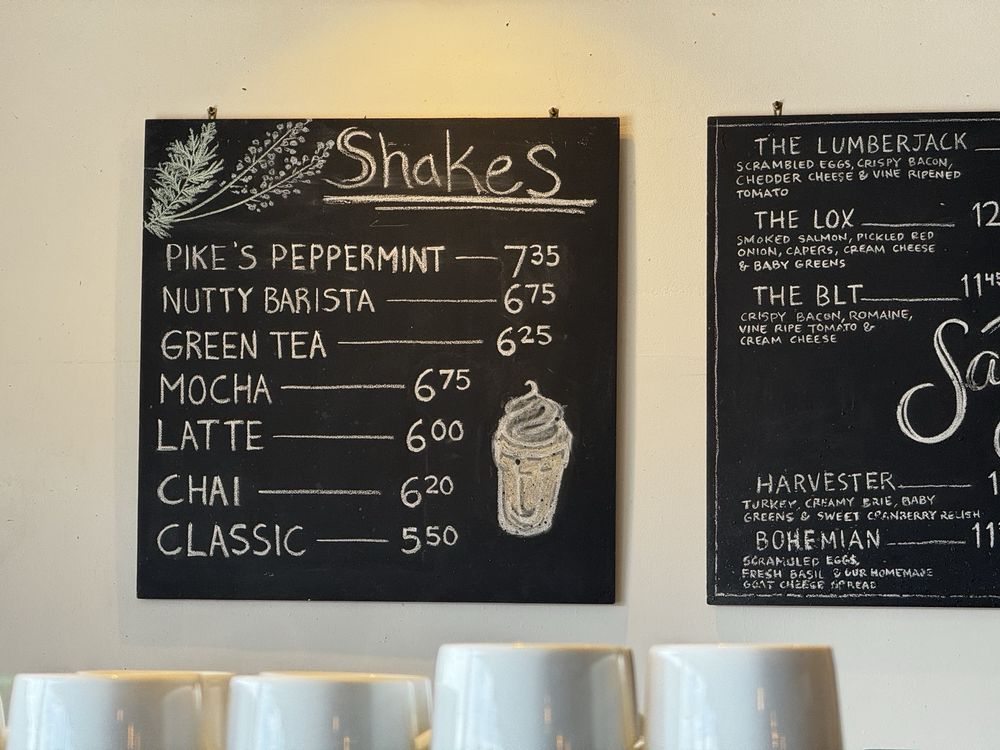 Shakes
PIKE'S PEPPERMINT 7 35
NUTTY BARISTA 6 75
GREEN TEA 6 25
MOCHA 6 75
LATTE 6 00
CHAI 6 20
CLASSIC 5 50
THE LUMBERJACK
SCRAMBLED EGGS, CRISPY BACON,
CHEDDER CHEESE & VINE RIPENED
TOMATO
THE LOX 12
SMOKED SALMON, PICKLED RED
ONION, CAPERS, CREAM CHEESE
& BABY GREENS
THE BLT 11 45
CRISPY BACON, ROMAINE,
VINE RIPE TOMATO &
CREAM CHEESE
Sa
HARVESTER 1
TURKEY, CREAMY BRIE, BABY
GREENS & SWEET CRANBERRY RELISH
BOHEMIAN 11
SCRAMBLED EGGS,
FRESH BASIL & OUR HOMEMADE
GOAT CHEESE SPREAD